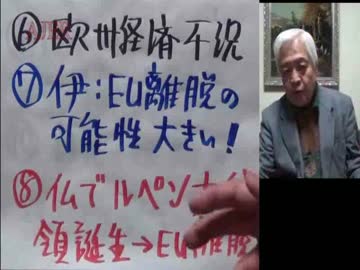 ⑥欧州経済不況
⑦伊:EU離脱の
可能性大きい!
⑧仏でルペン大統
領誕生→EU離脱